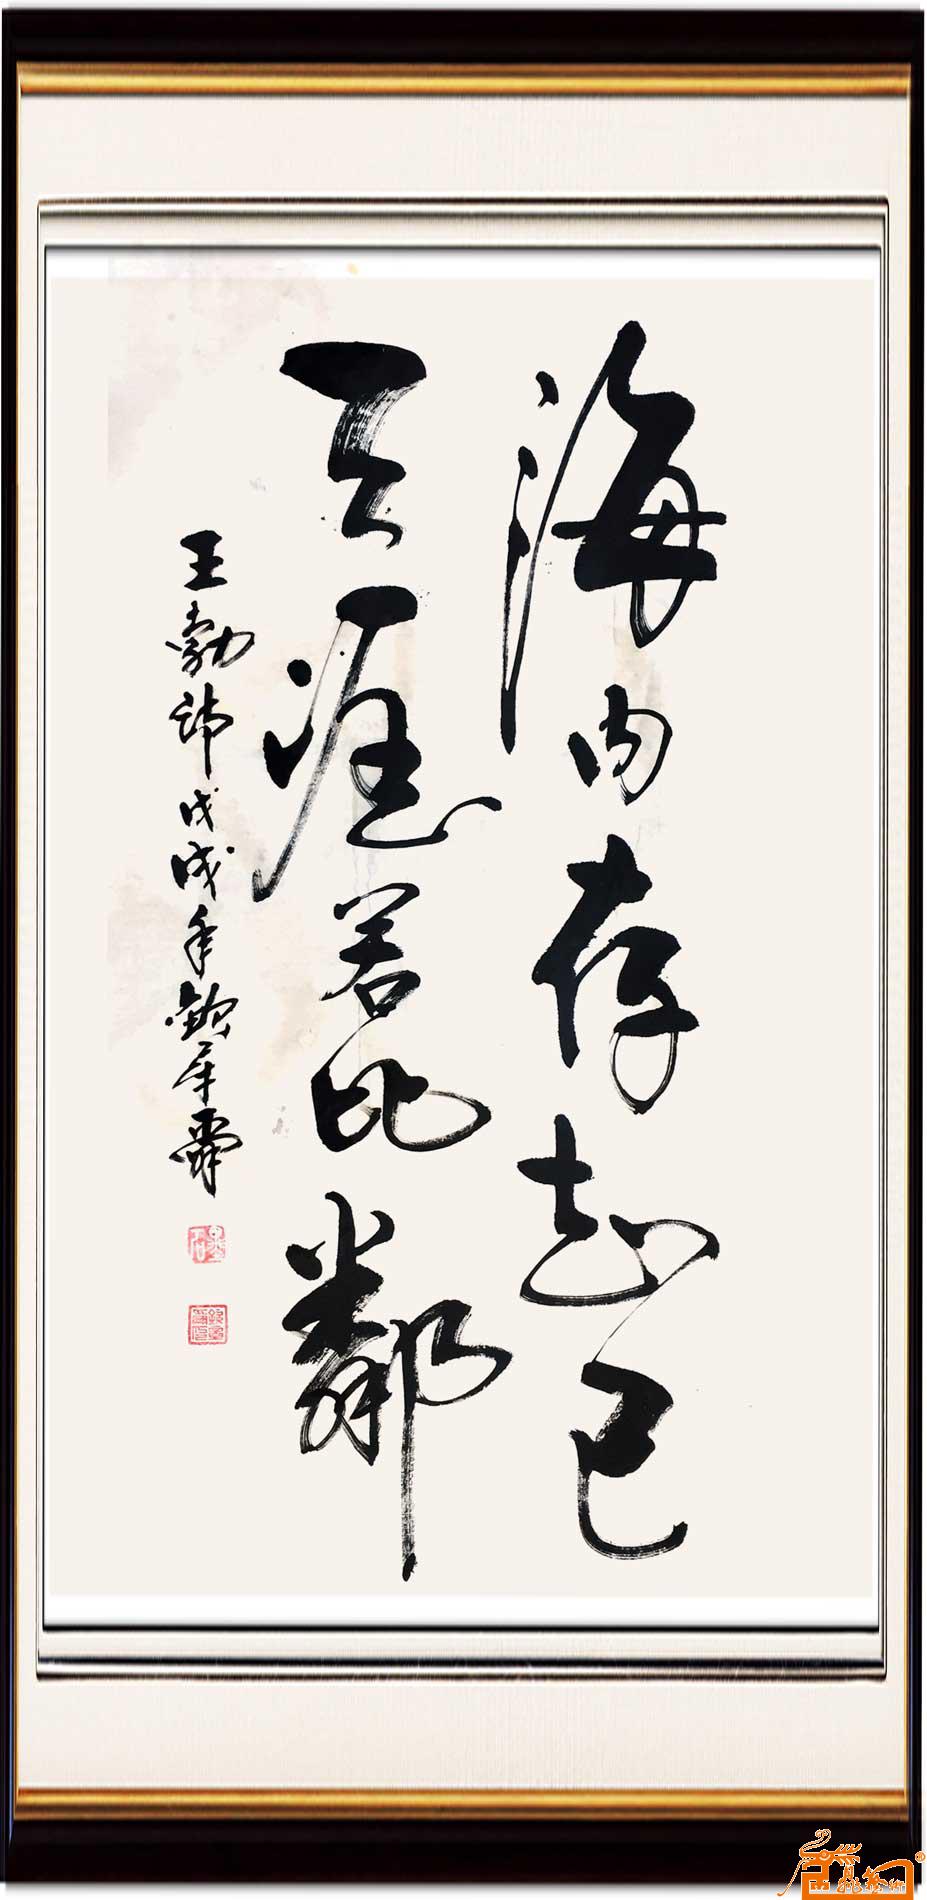 海内存知己
天涯若比邻
王勃诗戊戌年钦军舜